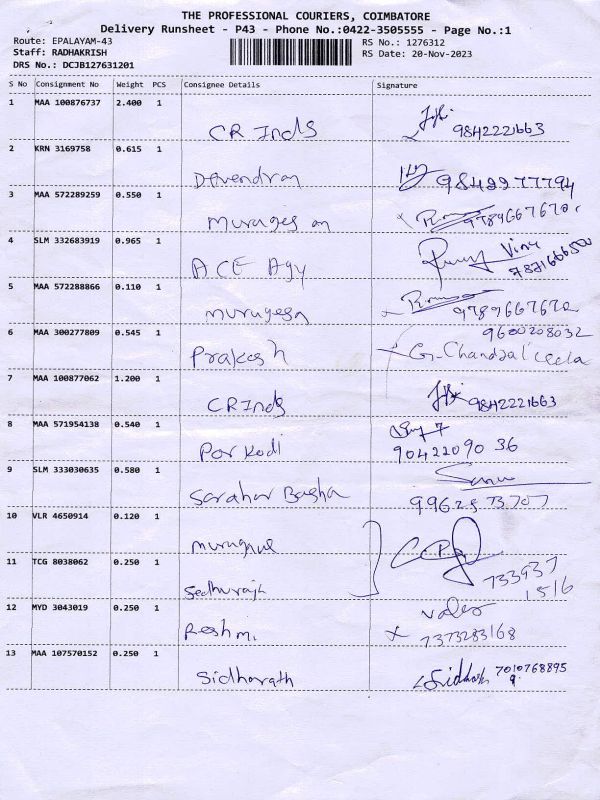 THE PROFESSIONAL COURIERS, COIMBATORE
Delivery Runsheet - P43 - Phone No.:0422-3505555 - Page No.:1
Route: EPALAYAM-43
Staff: RADHAKRISH
DRS No.: DCJB127631201
RS No.: 1276312
RS Date: 20-Nov-2023
S No Consignment No Weight PCS Consignee Details Signature
1 MAA 100876737 2.400 1
CR Inds 9842221663
2 KRN 3169758 0.615 1
Devendran 9842977794
3 MAA 572289259 0.550 1
murugesan 9789667672
4 SLM 332683919 0.965 1
ACE Agy
5 MAA 572288866 0.110 1
murugesan 9789667672
6 MAA 300277809 0.545 1 9600208032
Prakash
7 MAA 100877062 1.200 1
CR Inds 9842221663
8 MAA 571954138 0.540 1
Porkodi 9042209036
9 SLM 333030635 0.580 1
Basha
10 VLR 4650914 0.120 1
11 TCG 8038062 0.250 1
733937
1516
12 MYD 3043019 0.250 1
Reshmi 7373283168
13 MAA 107570152 0.250 1
Sidharath 7010768895